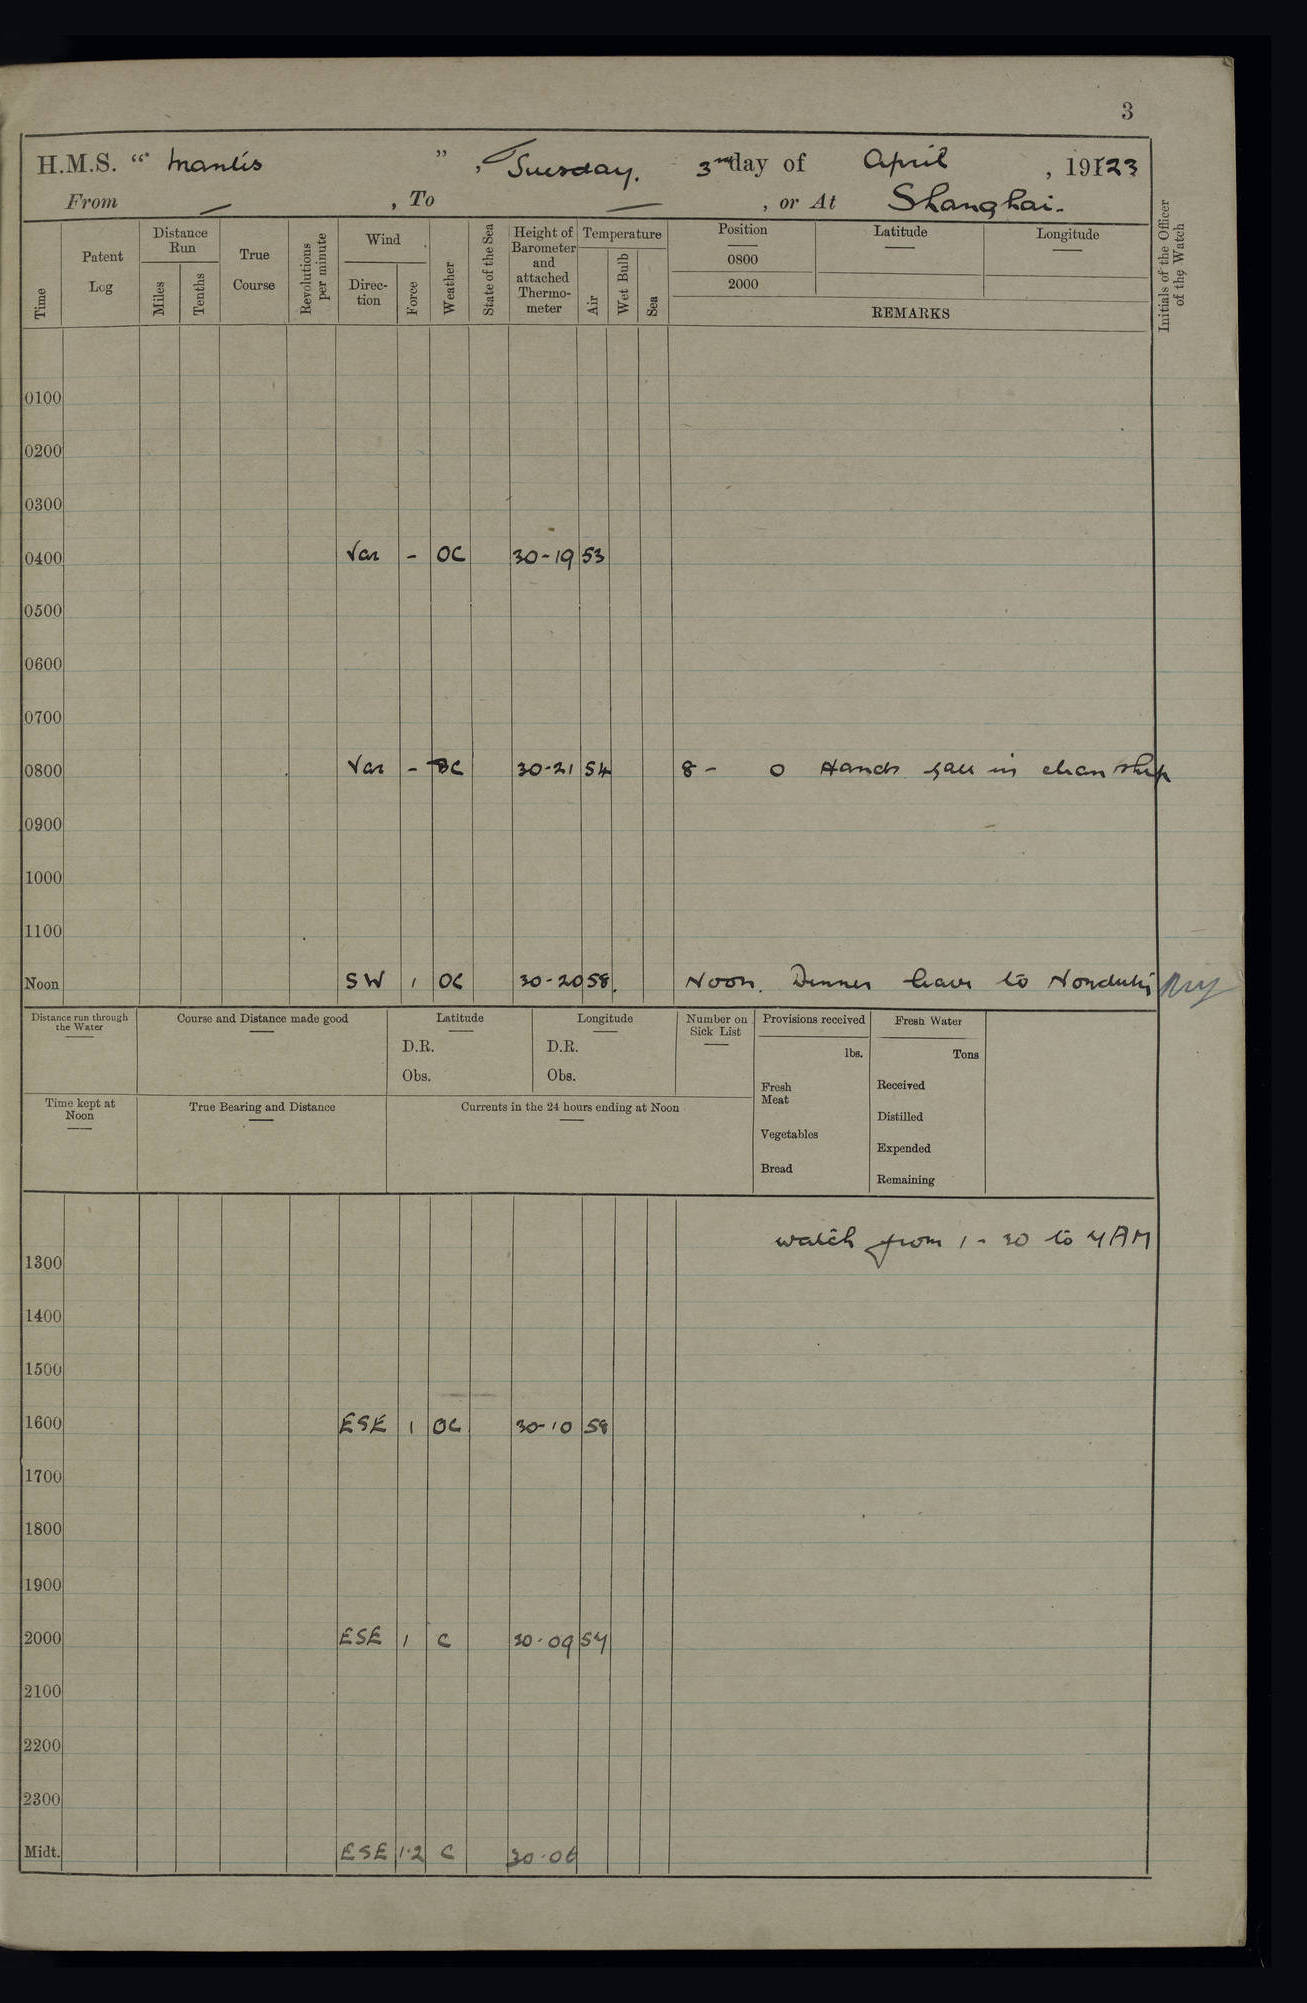 3
H.M.S. “ Mantis ” , Tuesday, 3rd day of April , 19123
From — , To — , or At Shanghai.
Time
Patent Log
Distance Run
Miles
Tenths
True Course
Revolutions per minute
Wind
Direction
Force
Weather
State of the Sea
Height of Barometer and attached Thermometer
Temperature
Air
Wet Bulb
Sea
Position
0800
2000
Latitude
Longitude
REMARKS
Initials of the Officer of the Watch
0100
0200
0300
0400 Var - OC 30-19 53
0500
0600
0700
0800 Var - BC 30-21 54 8 - 0 Hands fall in clean ship
0900
1000
1100
Noon SW 1 OC 30-20 58. Noon. Dinner leave to Nonduty
Distance run through the Water
Course and Distance made good
Latitude
D.R.
Obs.
Longitude
D.R.
Obs.
Number on Sick List
Provisions received
lbs.
Fresh Meat
Vegetables
Bread
Fresh Water
Tons
Received
Distilled
Expended
Remaining
Time kept at Noon
True Bearing and Distance
Currents in the 24 hours ending at Noon
watch from 1-30 to 4AM
1300
1400
1500
1600 ESE 1 OC 30-10 58
1700
1800
1900
2000 ESE 1 C 30-09 54
2100
2200
2300
Midt. ESE 1.2 C 30-06